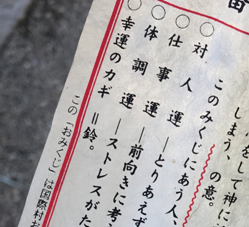 番
名して神に
しまう、の意。
このみくじにあう人、
○対人運
○仕事運―とりあえず
○体調運―前向きに考
○幸運のカギ=鈴。
―ストレスがた
この「おみくじ」は国際村お